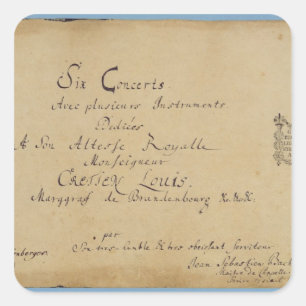 Six Concerts
Avec plusieurs Instruments.
Dediées
A Son Altesse Royalle
Monseigneur
CRETIEN LOUIS.
Marggraff de Brandenbourg &c:&c:&c:
par
Son tres-humble & tres obeissant serviteur
Jean Sebastien Bach
Maitre de Chapelle